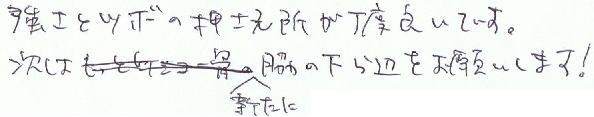 強さとツボの押さえ所が丁度良いです。
次は脇の下ら辺をお願いします!
新たに